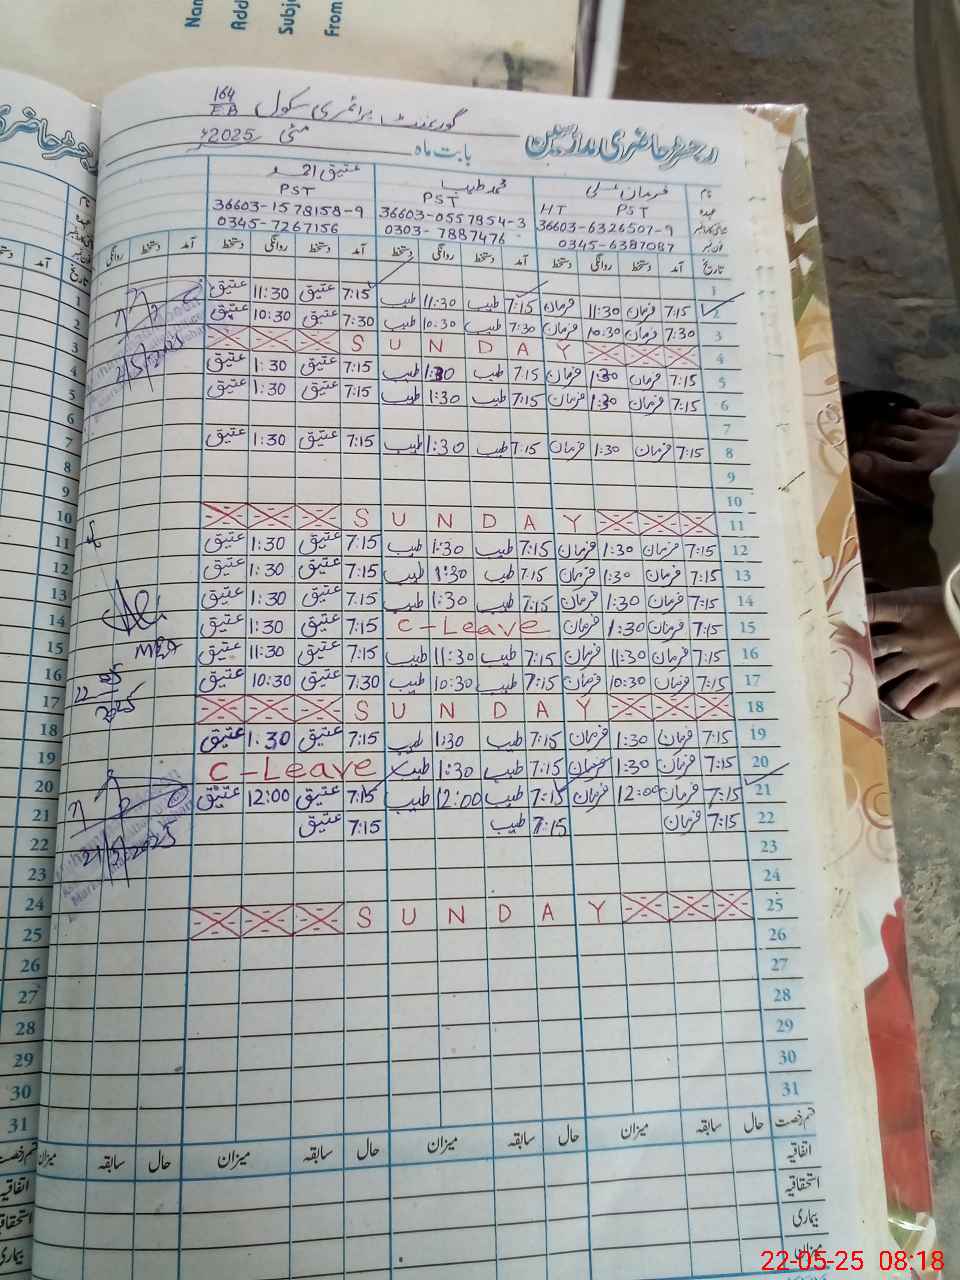 گورنمنٹ پرائمری سکول 164/EB
رجسٹر حاضری مدرسین
بابت ماہ مئی 2025ء
نام فرمان علی محمد طیب عتیق احمد
عہدہ HT PST PST PST
36603-6326507-9 36603-0557854-3 36603-1578158-9
0345-6387087 0303-7887476 0345-7267156
تاریخ آمد دستخط روانگی دستخط آمد دستخط روانگی دستخط آمد دستخط روانگی دستخط
1
2 7:15 فرمان 11:30 فرمان 7:15 طیب 11:30 طیب 7:15 عتیق 11:30 عتیق
3 7:30 فرمان 10:30 فرمان 7:30 طیب 10:30 طیب 7:30 عتیق 10:30 عتیق
4 SUNDAY
5 7:15 فرمان 1:30 فرمان 7:15 طیب 1:30 طیب 7:15 عتیق 1:30 عتیق
6 7:15 فرمان 1:30 فرمان 7:15 طیب 1:30 طیب 7:15 عتیق 1:30 عتیق
7
8 7:15 فرمان 1:30 فرمان 7:15 طیب 1:30 طیب 7:15 عتیق 1:30 عتیق
9
10
11 SUNDAY
12 7:15 فرمان 1:30 فرمان 7:15 طیب 1:30 طیب 7:15 عتیق 1:30 عتیق
13 7:15 فرمان 1:30 فرمان 7:15 طیب 1:30 طیب 7:15 عتیق 1:30 عتیق
14 7:15 فرمان 1:30 فرمان 7:15 طیب 1:30 طیب 7:15 عتیق 1:30 عتیق
15 7:15 فرمان 1:30 فرمان C-Leave 7:15 عتیق 1:30 عتیق
16 7:15 فرمان 11:30 فرمان 7:15 طیب 11:30 طیب 7:15 عتیق 11:30 عتیق
17 7:15 فرمان 10:30 فرمان 7:15 طیب 10:30 طیب 7:30 عتیق 10:30 عتیق
18 SUNDAY
19 7:15 فرمان 1:30 فرمان 7:15 طیب 1:30 طیب 7:15 عتیق 1:30 عتیق
20 7:15 فرمان 1:30 فرمان 7:15 طیب 1:30 طیب C-Leave
21 7:15 فرمان 12:00 فرمان 7:15 طیب 12:00 طیب 7:15 عتیق 12:00 عتیق
22 7:15 فرمان 7:15 طیب 7:15 عتیق
23
24
25 SUNDAY
26
27
28
29
30
31
قسم رخصت حال سابقہ میزان حال سابقہ میزان حال سابقہ میزان
اتفاقیہ
استحقاقیہ
بیماری
میزان
22-05-25 08:18